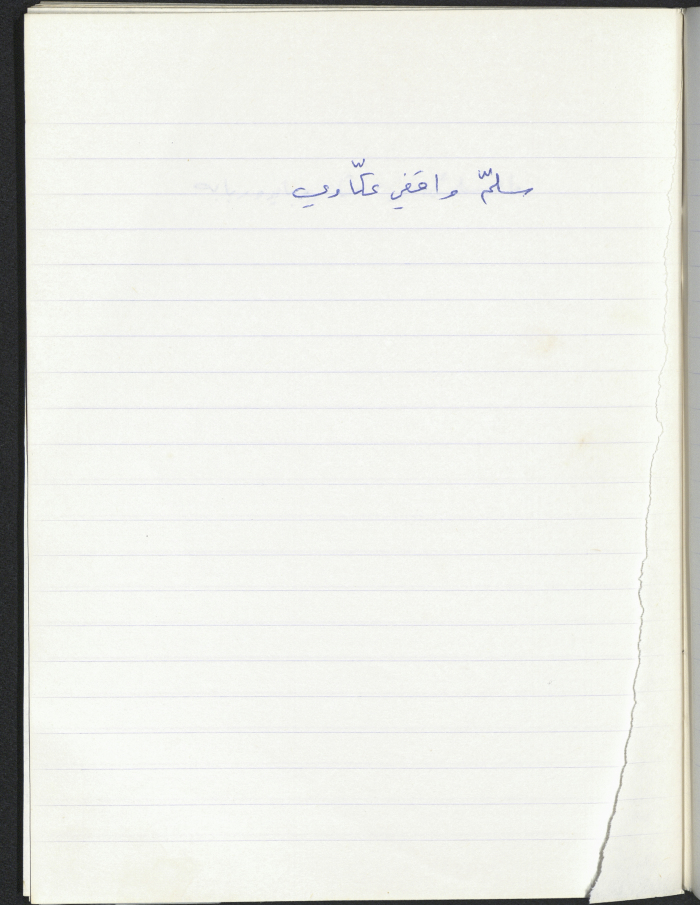 سلمّ واقفي عكّاوي